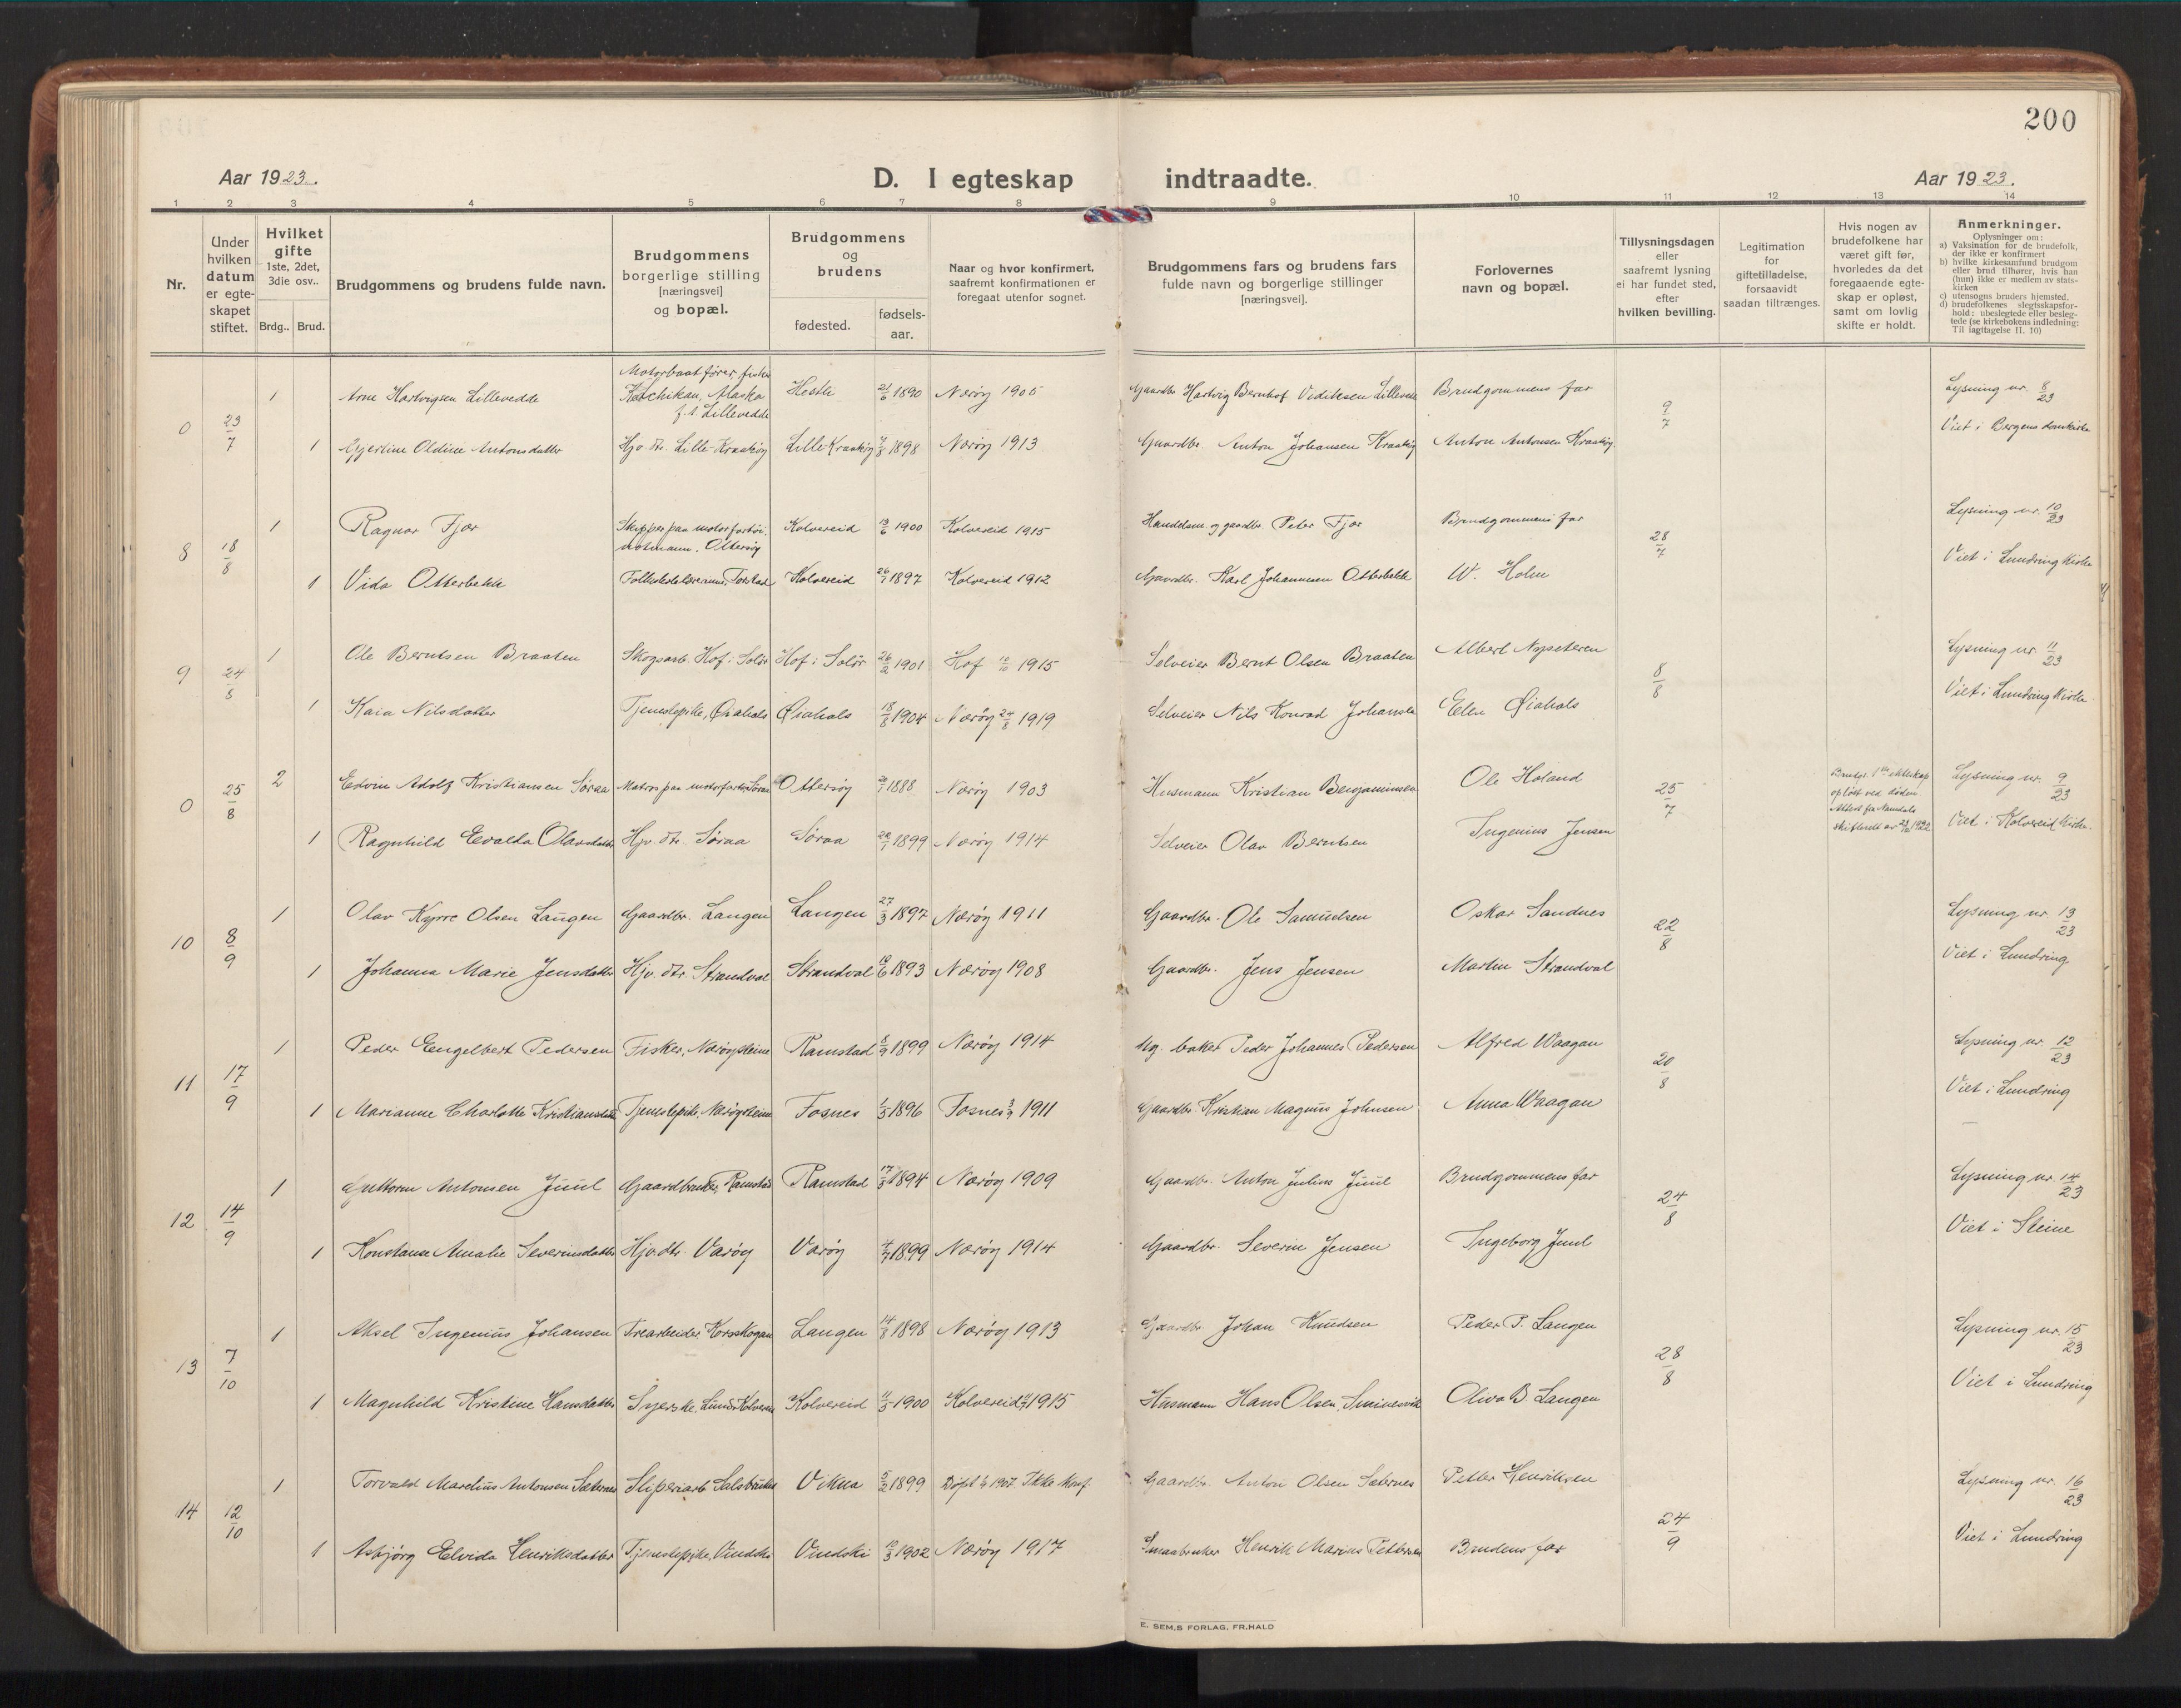 200
Aar 1923.
D. I egteskap indtraadte.
Aar 1923.
1 2 3 4 5 6 7 8 9 10 11 12 13 14
Nr.
Under hvilken datum er egte-skapet stiftet.
Hvilket gifte 1ste, 2det, 3die osv..
Brdg.. Brud.
Brudgommens og brudens fulde navn.
Brudgommens borgerlige stilling [næringsvei] og bopæl.
Brudgommens og brudens
fødested.
fødsels-aar.
Naar og hvor konfirmert, saafremt konfirmationen er foregaat utenfor sognet.
Brudgommens fars og brudens fars fulde navn og borgerlige stillinger [næringsvei].
Forlovernes navn og bopæl.
Tillysningsdagen eller saafremt lysning ei har fundet sted, efter hvilken bevilling.
Legitimation for giftetilladelse, forsaavidt saadan tiltrænges.
Hvis nogen av brudefolkene har været gift før, hvorledes da det foregaaende egte-skap er opløst, samt om lovlig skifte er holdt.
Anmerkninger.
Oplysninger om:
a) Vaksination for de brudefolk, der ikke er konfirmert
b) hvilke kirkesamfund brudgom eller brud tilhører, hvis han (hun) ikke er medlem av stats-kirken
c) utensogns bruders hjemsted.
d) brudefolkenes slegtsskapsfor-hold: ubeslegtede eller besleg-tede (se kirkebokens indledning: Til iagttagelse II. 10)
0 23/7
1 Arne Hartvigsen Lillevedde Motorbaatfører, fisker Ketchikan, Alaska f. t. Lillevedde 21/6 1890 Nærøy 1905 Gaardbr. Hartvig Bernhof Lillevedde Brudgommens far 9/7 Lysning nr. 8/23
1 Gjertine Oldine Antonsdatter Hjv. dtr. Lille Kraakøy Lille Kraakøy 1898 Nærøy 1913 Gaardbr. Anton Johansen Kraakøy Anton Antonsen Kraakøy Viet i Bergens domkirke
8 18/8
1 Ragnar Fjær Skipper paa motorfartøi Ottersøy Kolvereid 19/6 1900 Kolvereid 1915 Handelsm. og gaardbr. Peter Fjær Brudgommens far 28/7 Lysning nr. 10/23
1 Vida Otterbekk Kolvereid 26/7 1897 Kolvereid 1912 Gaardbr. Karl Johannesen Otterbekk W. Holm Viet i Lundring kirke
9 24/8
1 Ole Berntsen Braaten Skogsarb. Hof i Solør Hof i Solør 26/2 1901 Hof 1915 Selveier Bernt Olsen Braaten Albert Nyseteren 8/8 Lysning nr. 11/23
1 Kaia Nilsdatter Tjenestepike, Øiahals Øiahals 18/8 1904 Nærøy 24/8 1919 Selveier Nils Konrad Johansen Elen Øiahals Viet i Lundring kirke
0 25/8
2 Edvin Adolf Kristiansen Søraa Matros paa motorfartøi Søraa Ottersøy 1888 Nærøy 1903 Husmann Kristian Benjaminsen Ole Holand 25/7 Brudg. 1ste ekteskap opløst ved døden. Attest fra Namdals skifterett av 1922 Lysning nr. 9/23
1 Ragnhild Evalda Olavsdatter Hjv. dtr. Søraa Søraa 1899 Nærøy 1914 Selveier Olav Berntsen Ingenius Jensen Viet i Kolvereid kirke
10 8/9
1 Olav Kyrre Olsen Langen Gaardbr. Langen Langen 27/3 1897 Nærøy 1911 Gaardbr. Ole Samuelsen Oskar Sandnes 22/8 Lysning nr. 13/23
1 Johanna Marie Jensdatter Hjv. dtr. Strandval Strandval 1893 Nærøy 1908 Gaardbr. Jens Jensen Martin Strandval Viet i Lundring
11 17/9
1 Peder Engelbert Pedersen Fisker, Nærøysteine Ramstad 8/9 1899 Nærøy 1914 Ug. baker Peder Johannes Pedersen Alfred Waagan 20/8 Lysning nr. 12/23
1 Marianne Charlotte Kristiansdatter Tjenestepike, Nærøysteine Fosnes 1/5 1896 Fosnes 1911 Gaardbr. Kristian Magnus Johnsen Anna Waagan Viet i Lundring
12 14/9
1 Guttorm Antonsen Juul Gaardbruker, Ramstad Ramstad 17/3 1894 Nærøy 1909 Gaardbr. Anton Julius Juul Brudgommens far 24/8 Lysning nr. 14/23
1 Konstanse Amalie Severinsdatter Hjv. dtr. Varøy Varøy 4/7 1899 Nærøy 1914 Gaardbr. Severin Jensen Ingeborg Juul Viet i Steine
13 7/10
1 Aksel Ingenius Johansen Trearbeider Korsskogan Langen 14/8 1898 Nærøy 1913 Gaardbr. Johan Knudsen Peder P. Langen 28/8 Lysning nr. 15/23
1 Magnhild Kristine Hansdatter Syerske. Lund Kolvereid Kolvereid 11/5 1900 Kolvereid 1915 Husmann Hans Olsen, Olva B. Langen Viet i Lundring
14 12/10
1 Torvald Marelius Antonsen Sæternes Sliperiarb. Salsbruket Vikna 5/2 1899 Døpt 1907 Ikke konf. Gaardbr. Anton Olsen Sæternes Petter Henriksen 24/9 Lysning nr. 16/23
1 Asbjørg Elvida Henriksdatter Tjenestepike, Vindski Vindski 1902 Nærøy 1917 Smaabruker Henrik Marius Pettersen Brudens far Viet i Lundring
E. SEM,S FORLAG, FR.HALD